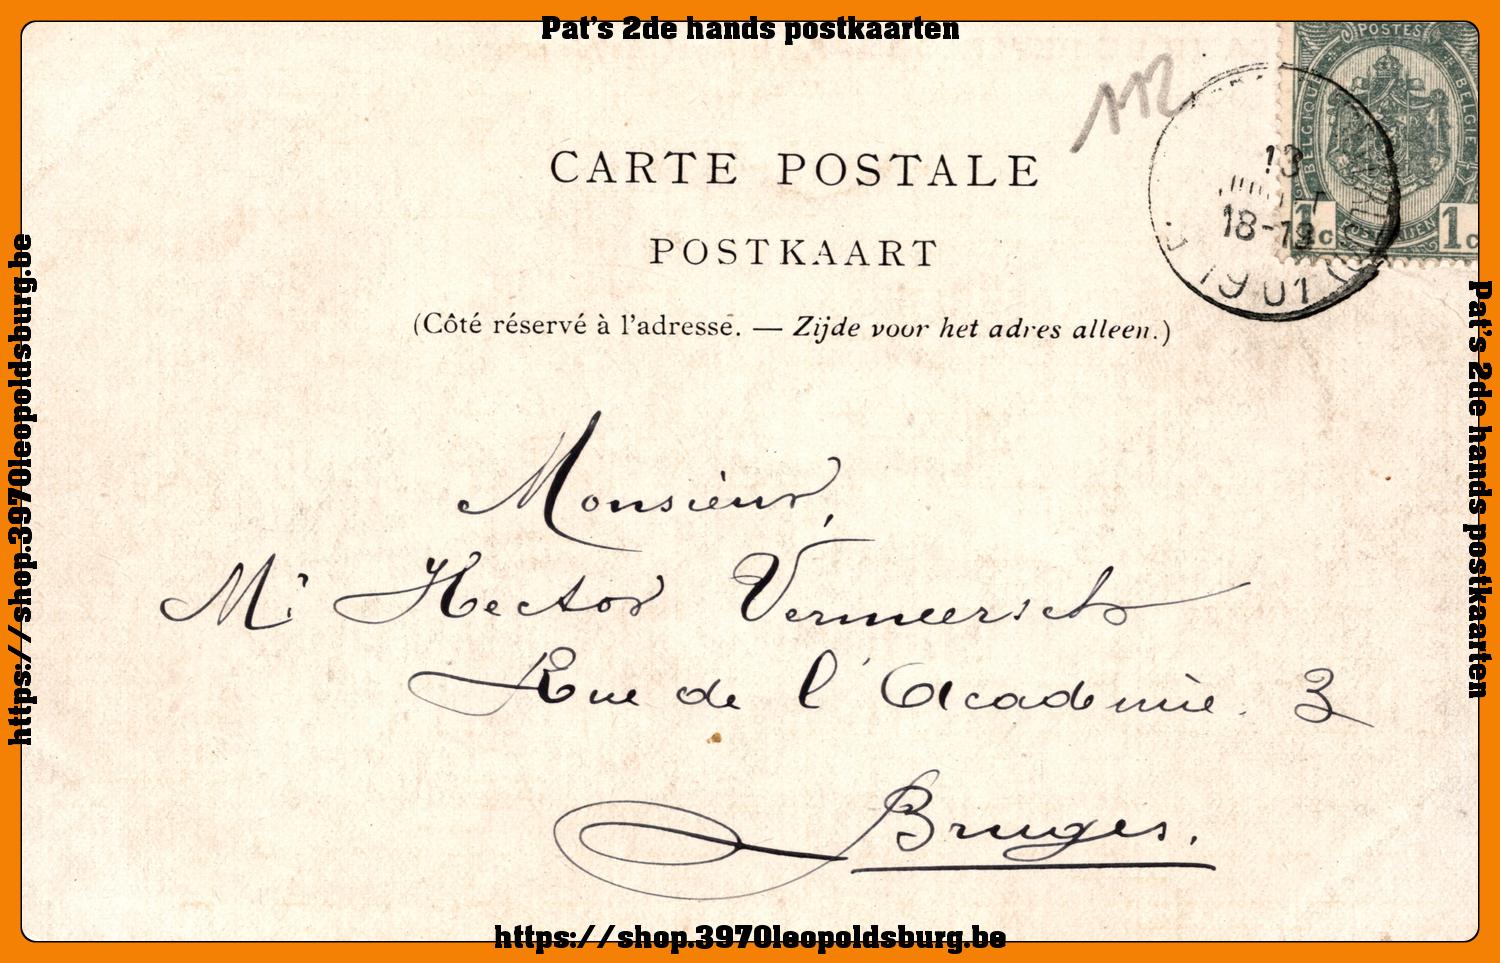 Pat's 2de hands postkaarten
POSTES
BELGIQUE
BELGIE
1c
1c
13
18-19
1901
112
CARTE POSTALE
POSTKAART
(Côté réservé à l'adresse. — Zijde voor het adres alleen.)
Monsieur,
Mr Hector Vermeersch
Rue de l'Académie. 3
Bruges.
https://shop.3970leopoldsburg.be
Pat's 2de hands postkaarten
https://shop.3970leopoldsburg.be